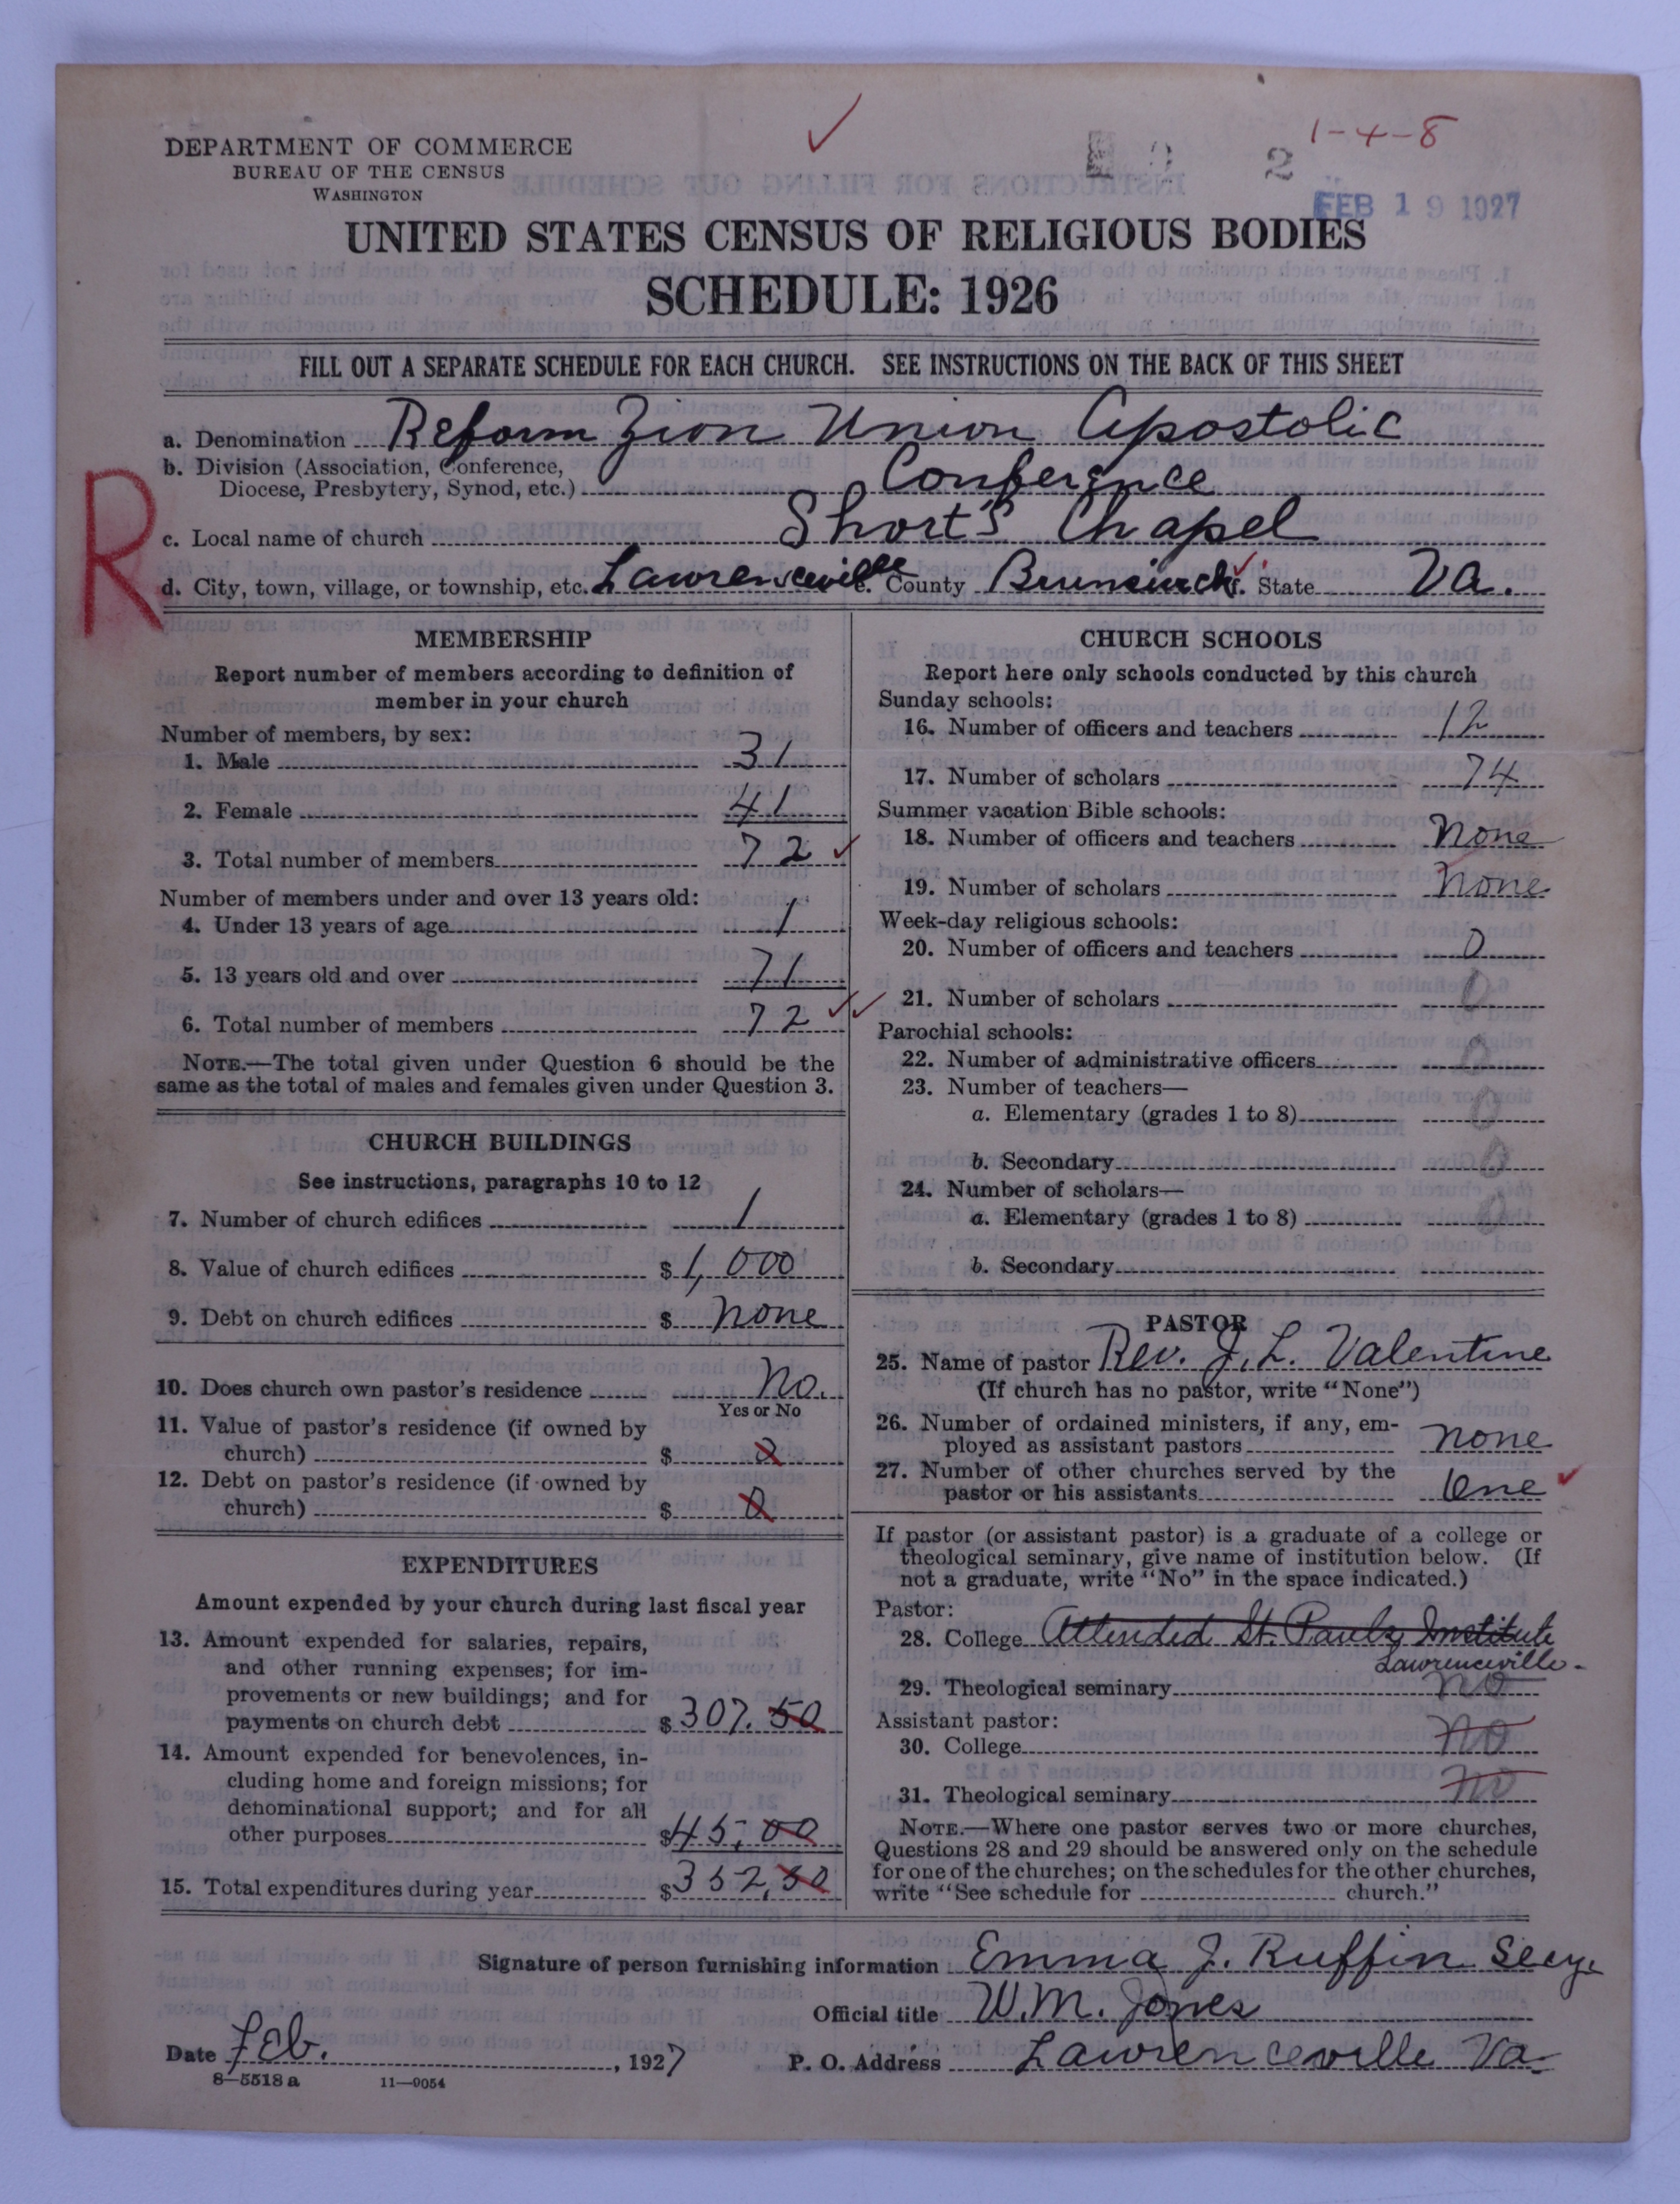 1-4-8
2
FEB 19 1927
DEPARTMENT OF COMMERCE
BUREAU OF THE CENSUS
WASHINGTON
UNITED STATES CENSUS OF RELIGIOUS BODIES
SCHEDULE: 1926
FILL OUT A SEPARATE SCHEDULE FOR EACH CHURCH. SEE INSTRUCTIONS ON THE BACK OF THIS SHEET
R
a. Denomination Reform Zion Union Apostolic
b. Division (Association, Conference,
Diocese, Presbytery, Synod, etc.) Conference
c. Local name of church Short's Chapel
d. City, town, village, or township, etc. Lawrenceville e. County Brunswick f. State Va.
MEMBERSHIP
Report number of members according to definition of
member in your church
Number of members, by sex:
1. Male 31
2. Female 41
3. Total number of members 72
Number of members under and over 13 years old:
4. Under 13 years of age 1
5. 13 years old and over 71
6. Total number of members 72
NOTE.—The total given under Question 6 should be the
same as the total of males and females given under Question 3.
CHURCH BUILDINGS
See instructions, paragraphs 10 to 12
7. Number of church edifices 1
8. Value of church edifices $ 1,000
9. Debt on church edifices $ none
10. Does church own pastor's residence No.
Yes or No
11. Value of pastor's residence (if owned by
church) $
12. Debt on pastor's residence (if owned by
church) $ 0
EXPENDITURES
Amount expended by your church during last fiscal year
13. Amount expended for salaries, repairs,
and other running expenses; for im-
provements or new buildings; and for
payments on church debt $ 307.50
14. Amount expended for benevolences, in-
cluding home and foreign missions; for
denominational support; and for all
other purposes $ 45.00
15. Total expenditures during year $ 352.50
CHURCH SCHOOLS
Report here only schools conducted by this church
Sunday schools:
16. Number of officers and teachers 12
17. Number of scholars 74
Summer vacation Bible schools:
18. Number of officers and teachers none
19. Number of scholars none
Week-day religious schools:
20. Number of officers and teachers 0
21. Number of scholars 0
Parochial schools:
22. Number of administrative officers 0
23. Number of teachers—
a. Elementary (grades 1 to 8) 0
b. Secondary 0
24. Number of scholars—
a. Elementary (grades 1 to 8) 0
b. Secondary
PASTOR
25. Name of pastor Rev. J. L. Valentine
(If church has no pastor, write "None")
26. Number of ordained ministers, if any, em-
ployed as assistant pastors none
27. Number of other churches served by the
pastor or his assistants One
If pastor (or assistant pastor) is a graduate of a college or
theological seminary, give name of institution below. (If
not a graduate, write "No" in the space indicated.)
Pastor:
28. College Attended St. Pauls Institute
Lawrenceville.
29. Theological seminary no
Assistant pastor:
30. College no
31. Theological seminary no
NOTE.—Where one pastor serves two or more churches,
Questions 28 and 29 should be answered only on the schedule
for one of the churches; on the schedules for the other churches,
write "See schedule for church."
Signature of person furnishing information Emma J. Ruffin Secy.
Official title W.M. Jones
Date Feb. , 1927 P. O. Address Lawrenceville Va
8-5518 a 11—9054